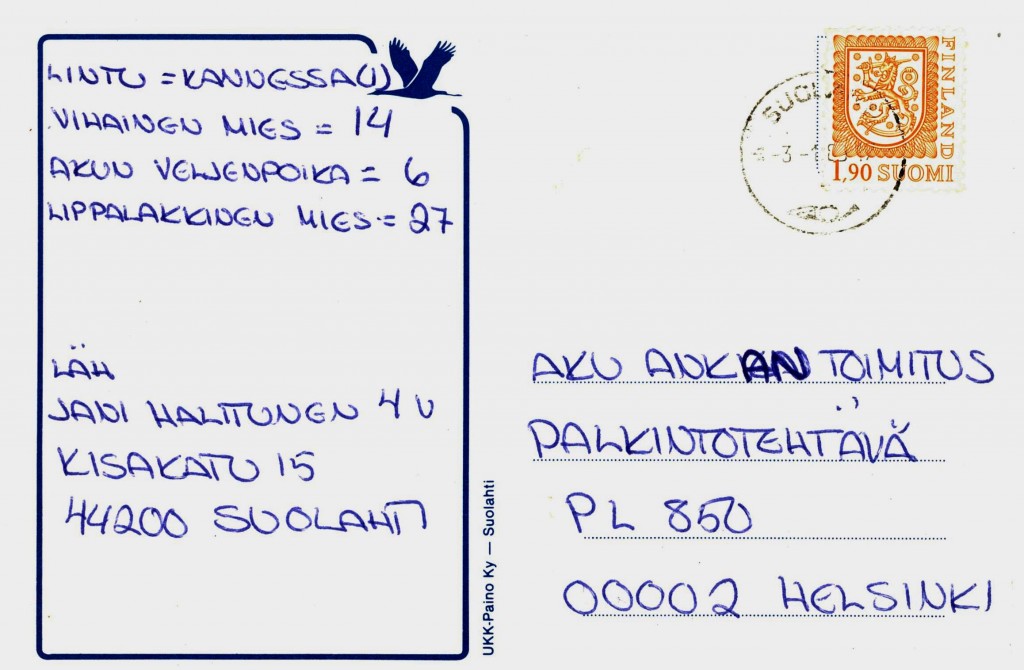 LINTU = KANNESSA (1)
VIHAINEN MIES = 14
AKUN VELJENPOIKA = 6
LIPPALAKKINEN MIES = 27
LÄH
JANI HALTTUNEN 4 V
KISAKATU 15
44200 SUOLAHTI
UKK-Paino Ky — Suolahti
FINLAND
1,90 SUOMI
AKU ANKAN TOIMITUS
PALKINTOTEHTÄVÄ
PL 850
00002 HELSINKI